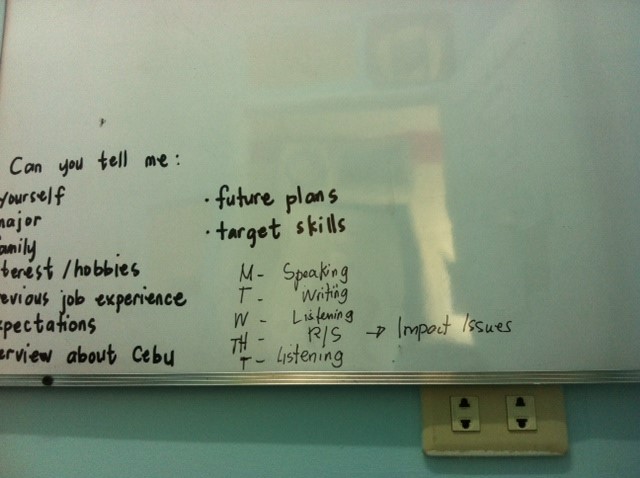 Can you tell me:
yourself
major
amily
terest / hobbies
evious job experience
pectations
erview about Cebu
• future plans
• target skills
M - Speaking
T - Writing
W - Listening
TH - R/S → Impact Issues
T - Listening